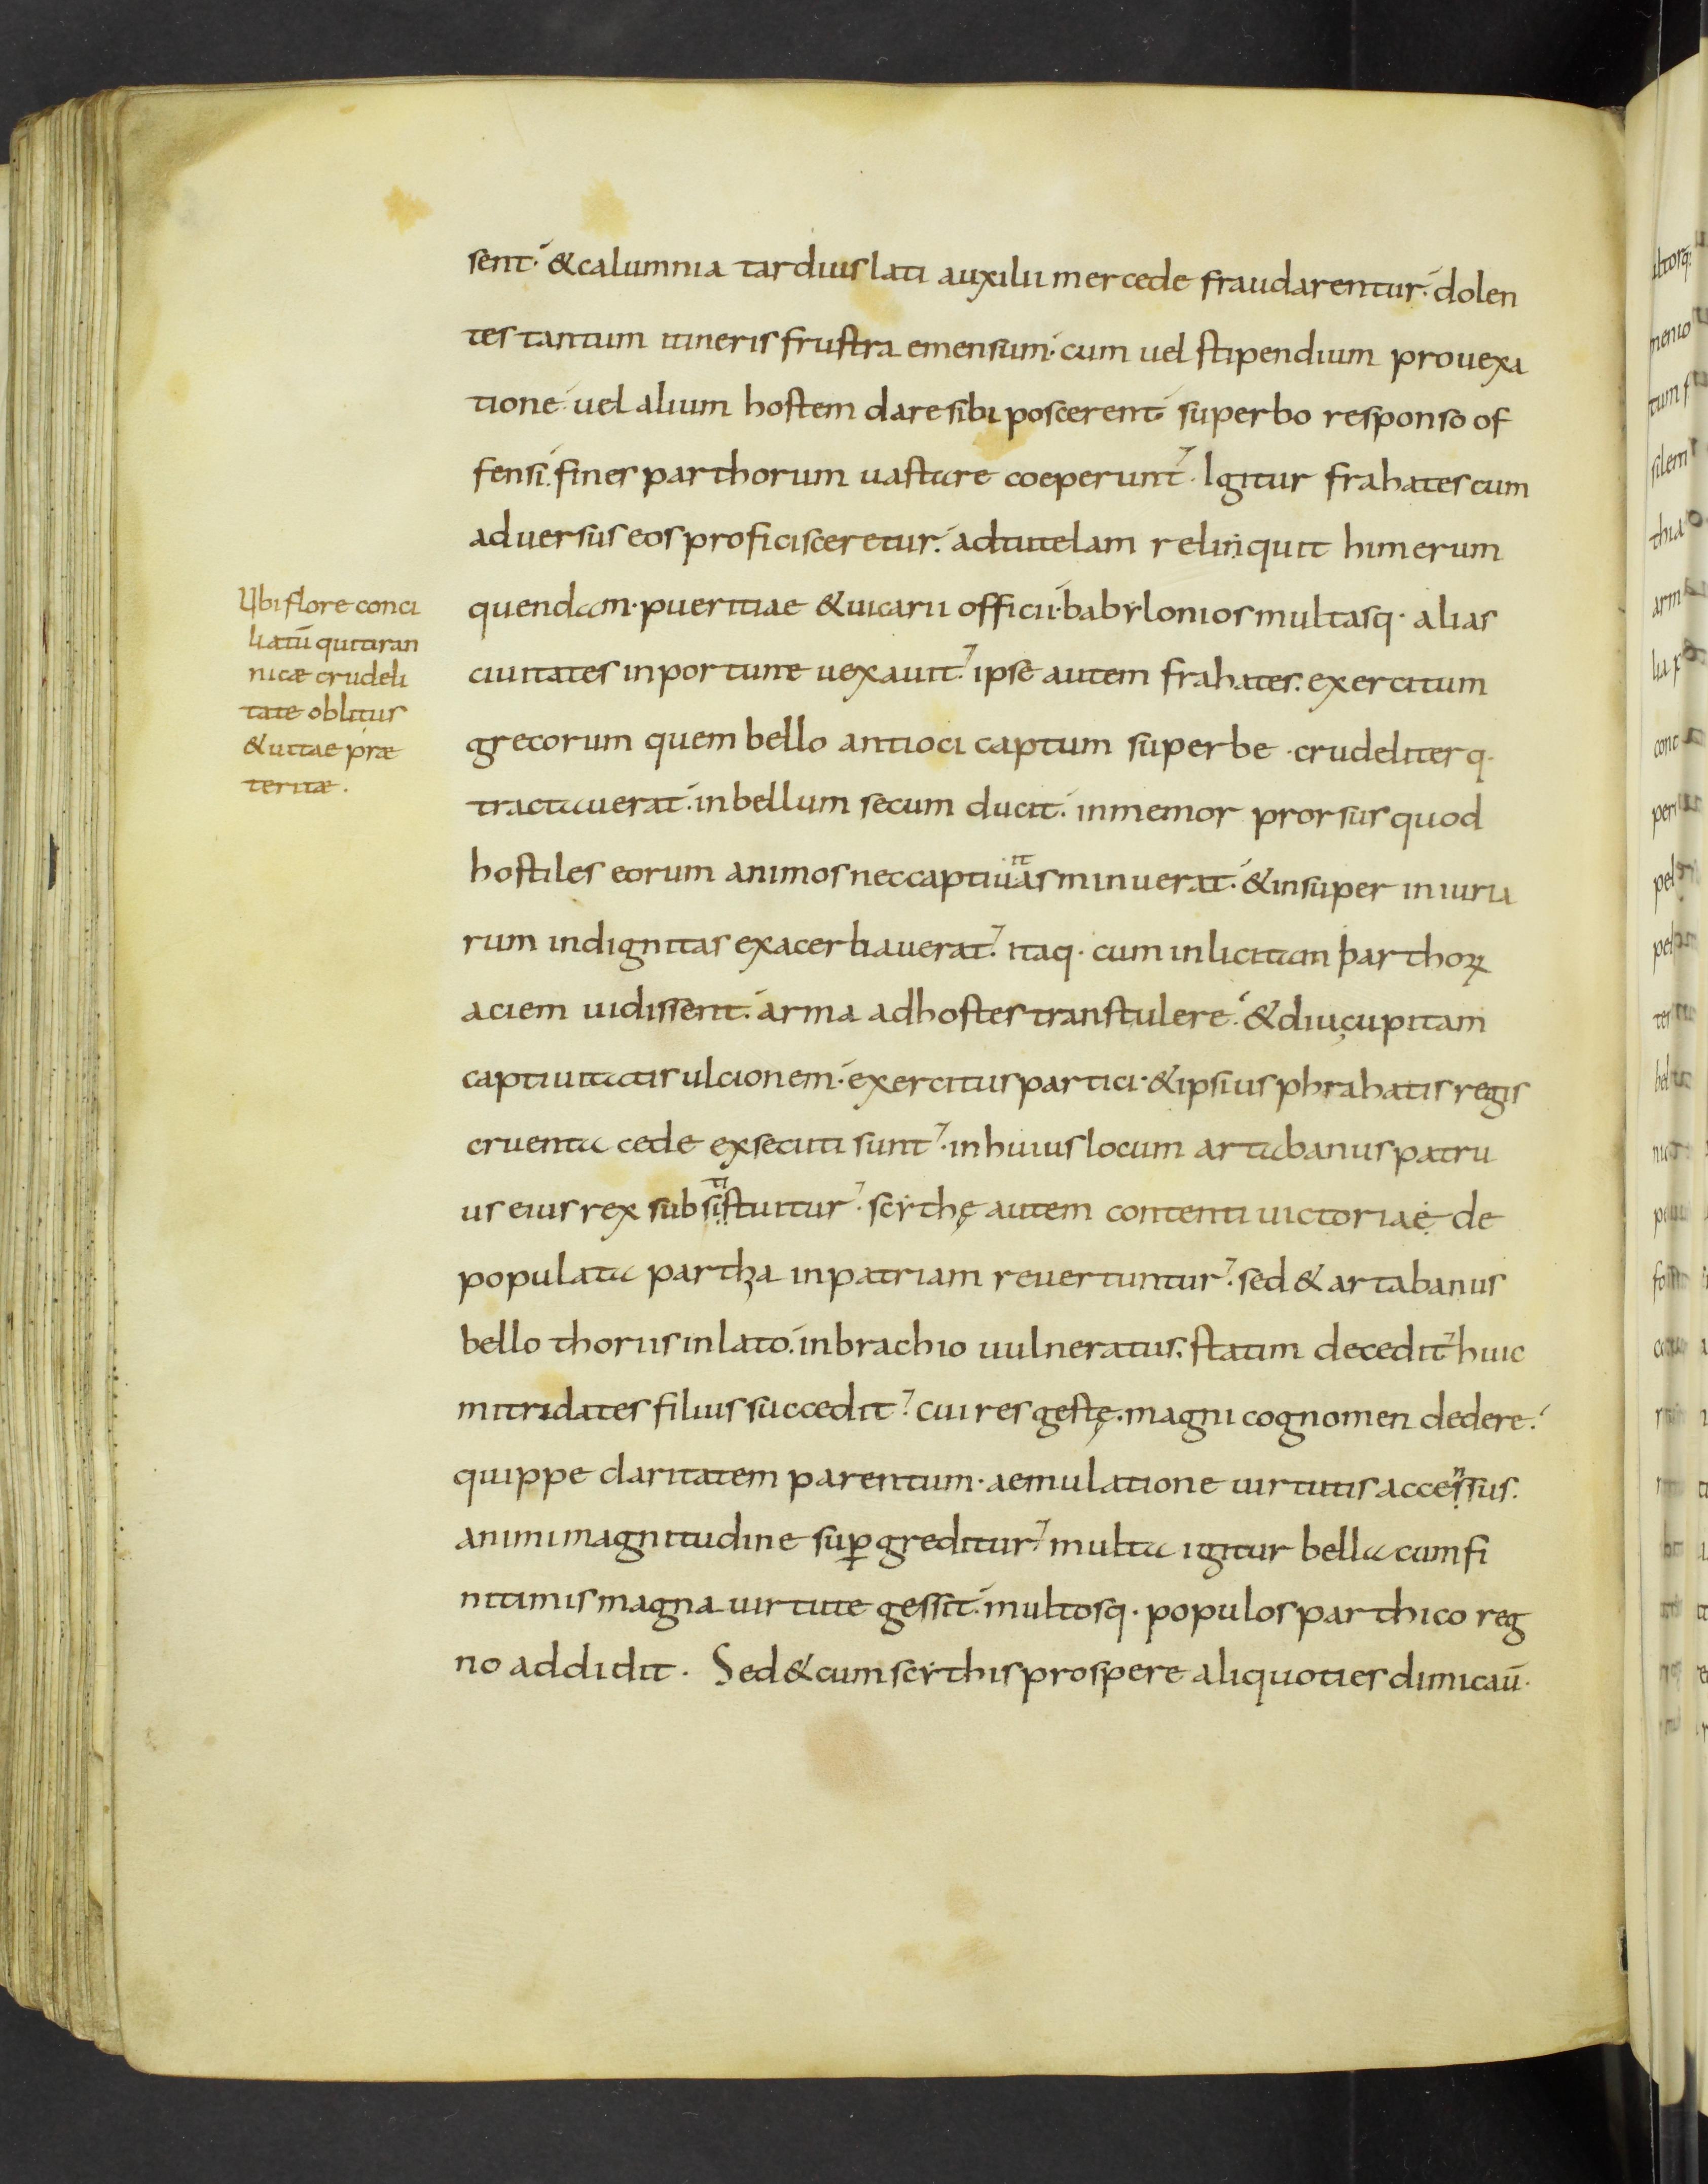 sent· & calumnia tardius lati auxilii mercede fraudarentur· dolen
tes tantum itineris frustra emensum· cum uel stipendium pro uexa
tione· uel alium hostem dare sibi poscerent· superbo responso of
fensi· fines parthorum uastare coeperunt· Igitur frahates cum
aduersus eos proficisceretur· ad tutelam relinquit himerum
quendam· pueritiae & uicarii officii· babylonios multasq· alias
ciuitates inportune uexauit· ipse autem frahates· exercitum
grecorum quem bello antioci captum superbe· crudeliterq·
tractauerat· in bellum secum ducit· inmemor prorsus quod
hostiles eorum animos nec captiuitas minuerat· & insuper iniuria
rum indignitas exacerbauerat· itaq· cum inlicitam parthoꝝ
aciem uidissent· arma ad hostes transtulere· & diu cupitam
captiuitatis ulcionem· exercitus partici· & ipsius phrahatis regis
cruenta cede exsecuti sunt· in huius locum artabanus patru
us eius rex substituitur· scythę autem contenti uictoriae de
populata parthia in patriam reuertuntur· sed & artabanus
bello thoriis inlato· in brachio uulneratus· statim decedit· huic
mitridates filius succedit· cui res gestę· magni cognomen dedere·
quippe claritatem parentum· aemulatione uirtutis accensus·
animi magnitudine suꝑgreditur· multa igitur bella cum fi
nitimis magna uirtute gessit· multosq· populos parthico reg
no addidit· Sed & cum scythis prospere aliquoties dimicaū·
Ubi flore conci
liatū qui tiran
nicæ crudeli
tate oblitus
& uitae præ
teritæ·